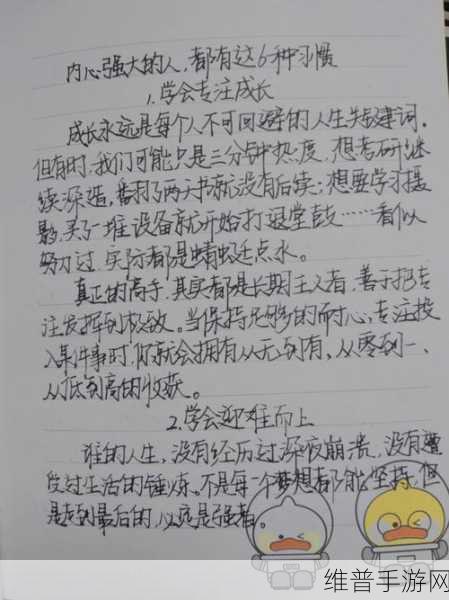 内心强大的人，都有这6种习惯
1.学会专注成长
成长永远是每个人不可回避的人生关键词，
但有时，我们可能只是三分钟热度，想考研继
续深造，看了两天书就没有后续；想要学习摄
影，买了一堆设备就开始打退堂鼓……看似
努力过，实际都是蜻蜓点水。
真正的高手，其实都是长期主义者，善于把专
注发挥到极致。当保持足够的耐心，专注投
入某件事时，你就会拥有从无到有、从零到一、
从低到高的收获。
2.学会迎难而上
谁的人生，没有经历过深夜崩溃，没有遭
受过生活的锤炼。不是每一个梦想都能坚持，但
是走到最后的，永远是强者。
维普手游网